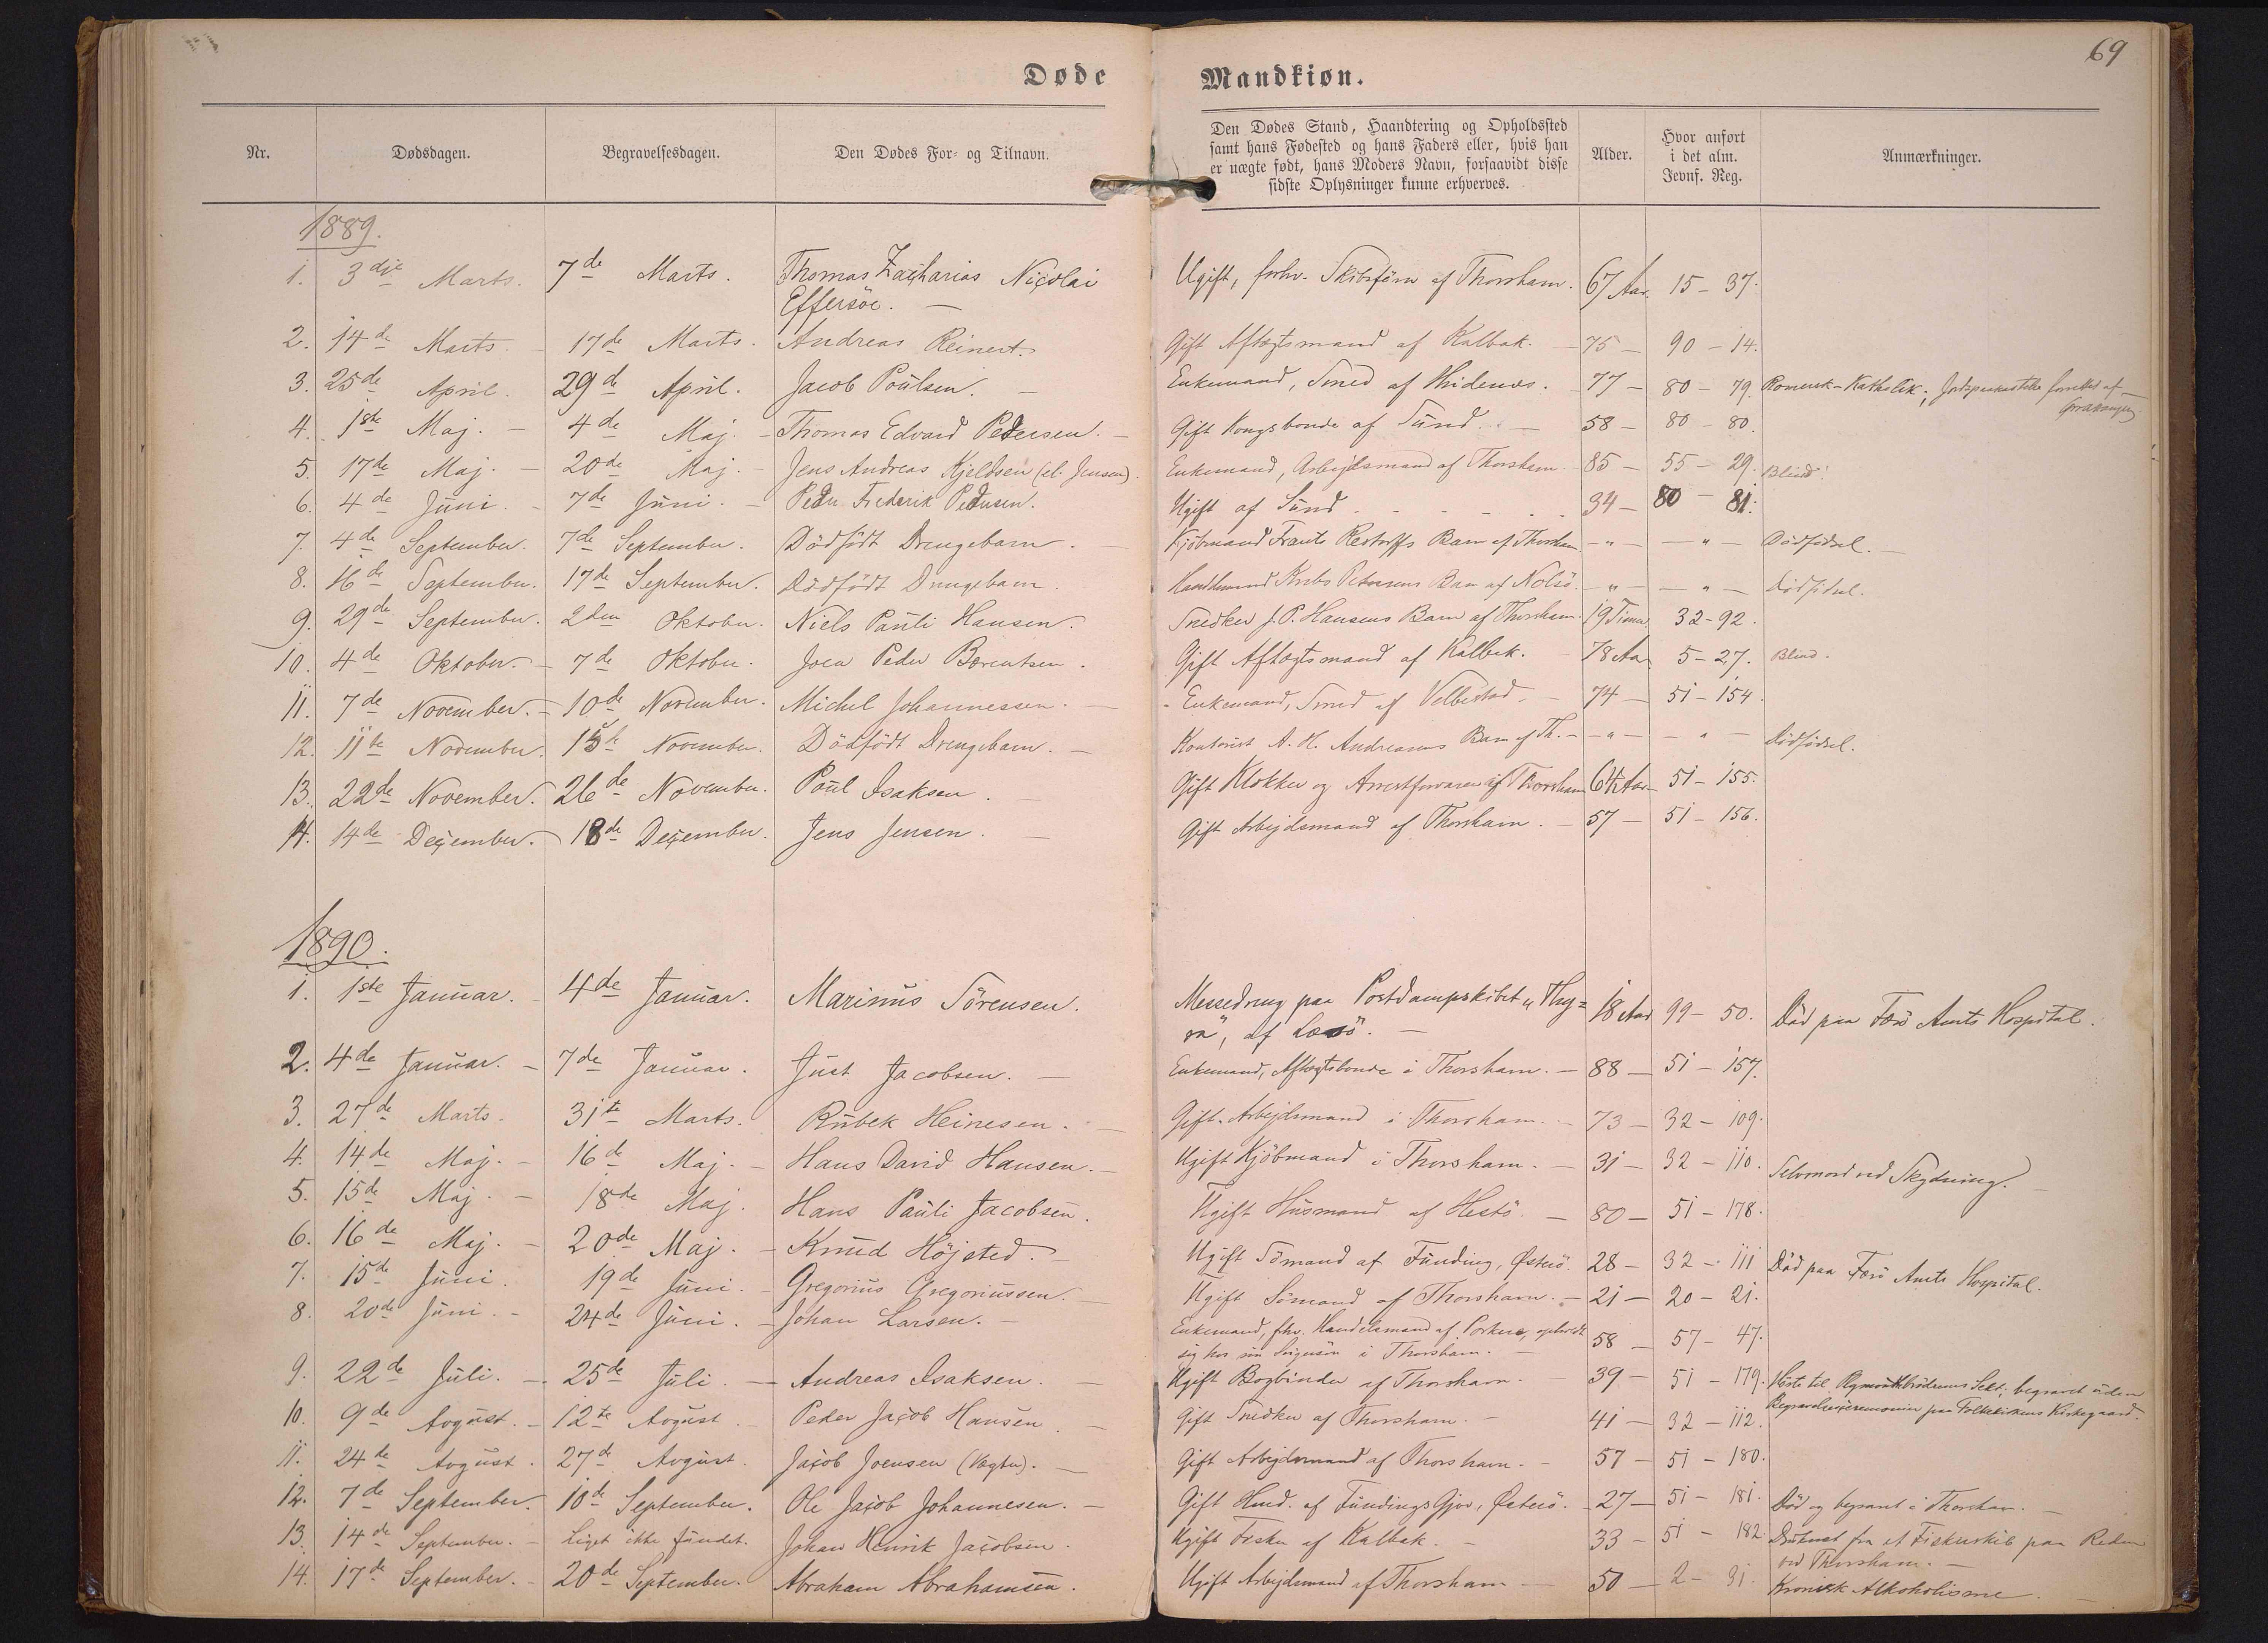 69
Døde Mandkiøn.
Nr. Dødsdagen. Begravelsesdagen. Den Dødes For- og Tilnavn. Den Dødes Stand, Haandtering og Opholdssted
samt hans Fødested og hans Faders eller, hvis han
er uægte født, hans Moders Navn, forsaavidt disse
sidste Oplysninger kunne erhverves. Alder. Hvor anført
i det alm.
Jevnf. Reg. Anmærkninger.
1889.
1. 3die Marts. 7de Marts. Thomas Zacharias Nicolai Ugift, forhv. Skibsförer af Thorshavn. 67 Aar. 15 - 37.
Effersöe. —
2. 14de Marts. 17de Marts. Andreas Reinert. Gift Aftægtsmand af Kalbak. 75 — 90 - 14.
3. 25de April. 29de April. Jacob Poulsen. Enkemand, Smed af Hvidenæs. 77 — 80 - 79. Romersk-Katholik; Jordpaakastelse forrettet af
4. 1ste Maj. — 4de Maj. — Thomas Edvard Pedersen. — Gift Kongsbonde af Sund. — 58 — 80 - 80.
5. 17de Maj. — 20de Maj. — Jens Andreas Kjeldsen (el. Jensen). Enkemand, Arbejdsmand af Thorshavn. 85 — 55 - 29. Blind.
6. 4de Juni. 7de Juni. — Peder Frederik Pedersen. Ugift af Sund 34 — 80 - 81.
7. 4de September. 7de September. Dödfödt Drengebarn. Kjöbmand Frants Restorffs Barn af Thorshavn. — " — — " — Dödfödsel.
8. 16de September. 17de September. Dödfödt Drengebarn. Handelsmand Krebs Petersens Barn af Nolsö. — " — — " — Dödfödsel.
9. 29de September. 2den Oktober. Niels Pauli Hansen. Snedker J. P. Hansens Barn af Thorshavn. 19 Timer 32 - 92.
10. 4de Oktober. — 7de Oktober. Joen Peder Berentsen. Gift Aftægtsmand af Kalbak. 78 Aar 5 - 27. Blind.
11. 7de November. — 10de November. Michel Johannessen. — Enkemand, Smed af Velbestad. — 74 — 51 - 154.
12. 11te November. 15de November. Dödfödt Drengebarn. — Kontorist A. H. Andreasens Barn af Th. — — " — — " — Dödfödsel.
13. 22de November. 26de November. Poul Isaksen. Gift Klokker og Arrestforvarer af Thorshavn 64 Aar 51 - 155.
14. 14de December. 18de December. Jens Jensen. — Gift Arbejdsmand af Thorshavn. — 57 — 51 - 156.
1890.
1. 1ste Januar. 4de Januar. Marinus Sörensen. Messedreng paa Postdampskibet „Thy= 18 Aar 99 - 50. Död paa Færö Amts Hospital.
ra", af Læsö. —
2. 4de Januar. — 7de Januar. Just Jacobsen. — Enkemand, Aftægtsbonde i Thorshavn. — 88 — 51 - 157.
3. 27de Marts. 31te Marts. Rubek Heinesen. — Gift Arbejdsmand i Thorshavn. — 73 — 32 - 109.
4. 14de Maj. — 16de Maj. — Hans David Hansen. — Ugift Kjöbmand i Thorshavn. — 31 — 32 - 110. Selvmord ved Skydning. —
5. 15de Maj. — 18de Maj. Hans Pauli Jacobsen. Ugift Husmand af Hestö. — 80 — 51 - 178.
6. 16de Maj. — 20de Maj. — Knud Höjsted. — Ugift Sömand af Funding, Österö. 28 — 32 - 111 Död paa Færö Amts Hospital.
7. 15de Juni. 19de Juni. — Gregorius Gregoriussen. Ugift Sömand af Thorshavn. — 21 — 20 - 21.
8. 20de Juni. — 24de Juni. — Johan Larsen. — Enkemand, fhv. Handelsmand af Porkere, opholdt 58 — 57 - 47.
sig hos sin Svigersön i Thorshavn. —
9. 22de Juli. — 25de Juli. — Andreas Isaksen. — Ugift Bogbinder af Thorshavn. — 39 — 51 - 179. Hörte til Plymouthbrödrenes Sekt; begravet uden
Begravelsesceremonier paa Folkekirkens Kirkegaard.
10. 9de Avgust. — 12te Avgust. Peder Jacob Hansen. — Gift Snedker af Thorshavn. — 41 — 32 - 112.
11. 24de Avgust. 27de Avgust. Jacob Joensen (Vægter). — Gift Arbejdsmand af Thorshavn. — 57 — 51 - 180.
12. 7de September. 10de September. Ole Jacob Johannesen. — Gift Hmd. af Fundings Gjov, Österö. 27 — 51 - 181. Död og begravet i Thorshavn. —
13. 14de September. — Liget ikke fundet. Johan Henrik Jacobsen. Ugift Fisker af Kalbak. — 33 — 51 - 182. Druknet fra et Fiskerskib paa Reden
ved Thorshavn. —
14. 17de September. — 20de September. Abraham Abrahamsen. Ugift Arbejdsmand af Thorshavn — 50 — 2 - 31. Kronisk Alkoholisme. —